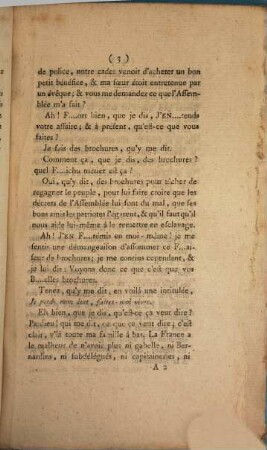 ( 3 )
de police, notre cadet venoit d'acheter un bon
petit bénéfice, & ma sœur étoit entretenue par
un évêque ; & vous me demandez ce que l'Assem-
blée m'a fait ?
Ah ! F....ort bien, que je dis, J'EN....tends
votre affaire ; & à présent, qu'est-ce que vous
faites ?
Je fais des brochures, qu'y me dit.
Comment ça, que je dis, des brochures ?
quel F...ichu métier est ça ?
Oui, qu'y dit, des brochures pour tâcher de
regagner le peuple, pour lui faire croire que les
décrets de l'Assemblée lui font du mal, que ses
bons amis les patriotes l'égarent, & qu'il faut qu'il
nous aide lui-même à le remettre en esclavage.
Ah ! J'EN F....rémis en moi-même ! je me
sentis une démangeaison d'assommer ce F...ai-
seur de brochures ; je me contins cependant, &
je lui dis : Voyons donc ce que c'est que vos
B...elles brochures.
Tenez, qu'y me dit, en voilà une intitulée,
Je perds mon état, faites-moi vivre.
Eh bien, que je dis, qu'est-ce ça veut dire ?
Pardieu ! qui me dit, ce que ça veut dire ; c'est
clair, v'là toute ma famille à bas. La France a
le malheur de n'avoir plus ni gabelle, ni Ber-
nardins, ni subdélégués, ni capitaineries, ni
A 2